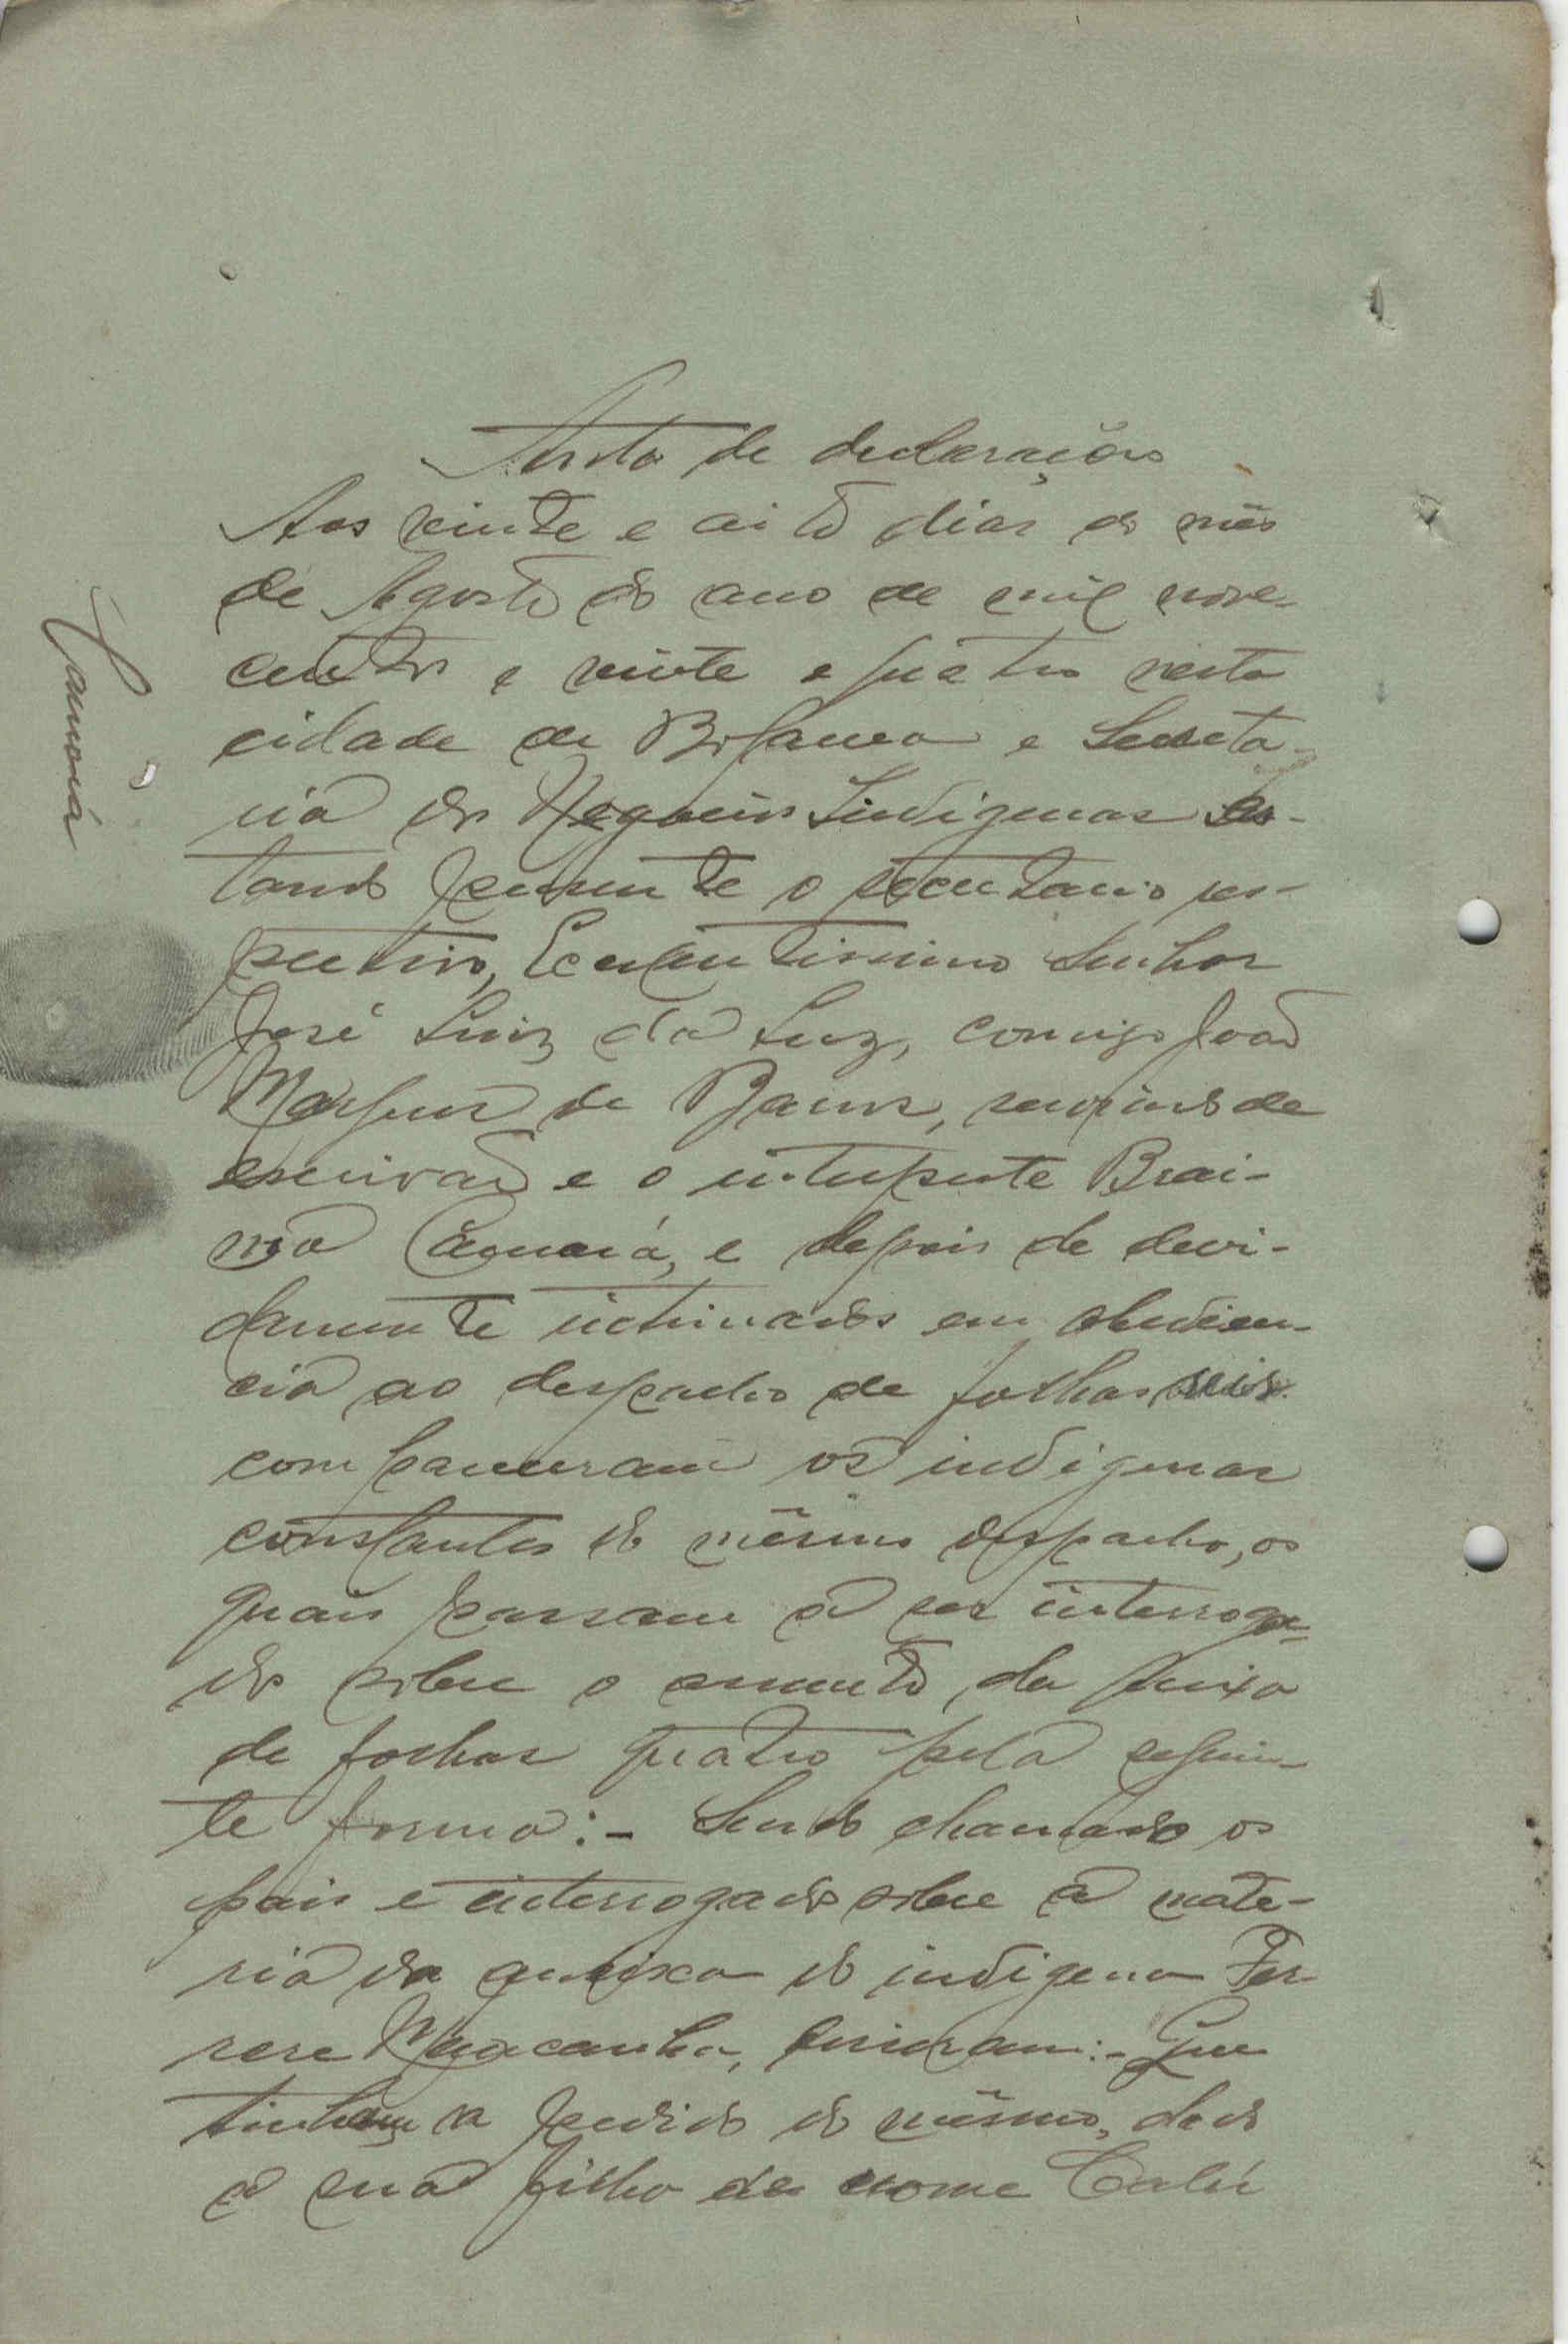 Auto de declarações
Aos vinte e oito dias do mês
de Agosto do ano de mil nove-
centos e vinte e quatro nesta
cidade de Bolama e Secreta-
ria dos Negocios Indigenas es-
tando presente o secretario res-
pectivo, Excelentissimo Senhor
José Luiz da Luz, comigo João
Marques de Barros, servindo de
escrivão e o interprete Brai-
ma Camará, e depois de devi-
damente intimados em obedien-
cia ao despacho de folhas seis
compareceram os indigenas
constantes do mêsmo despacho, os
quais passam a ser interroga-
dos sobre o assunto da queixa
de folhas quatro pela seguin-
te forma:- Sendo chamado os
pais e interrogados sobre a mate-
ria da queixa do indigena Fer-
rere disseram:- Que
tinham a pedido do mêsmo, dado
a sua filha de nome Calú
Camará